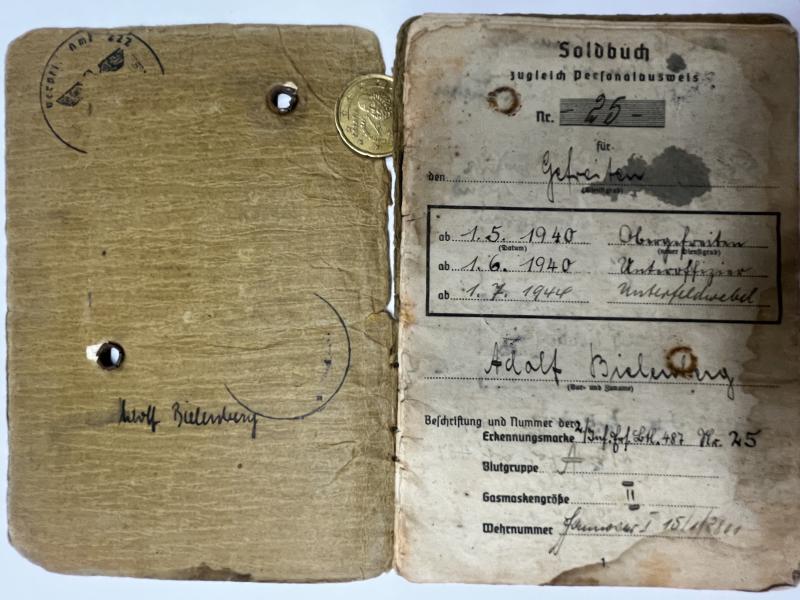 Verpfl. Amt 222
Adolf Bielenberg
Soldbuch
zugleich Personalausweis
Nr. - 25 -
für
den Gefreiten
(Dienstgrad)
ab 1.5. 1940 Obergefreiten
(Datum) (neuer Dienstgrad)
ab 1.6. 1940 Unteroffizier
ab 1.7. 1944 Unterfeldwebel
Adolf Bielenberg
(Vor- und Zuname)
Beschriftung und Nummer der
Erkennungsmarke 2/Inf. Ers. Btl. 487 Nr. 25
Blutgruppe A
Gasmaskengröße II
Wehrnummer Hannover I
1